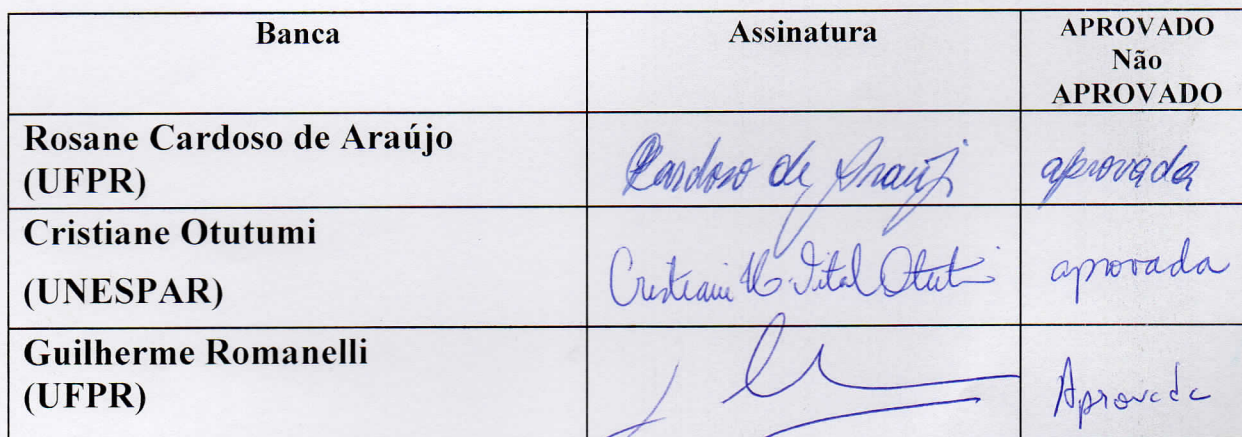 Banca Assinatura APROVADO
Não
APROVADO
Rosane Cardoso de Araújo
(UFPR)
Cardoso de Araújo aprovada
Cristiane Otutumi
(UNESPAR)
Vital aprovada
Guilherme Romanelli
(UFPR)
Aprovada